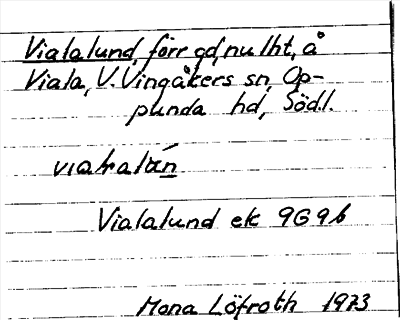 Vialalund, förr gd, nu lht, å
Viala, V. Vingåkers sn, Op-
punda hd, Södl.
Vialalund ek 9G9b
Mona Löfroth 1973